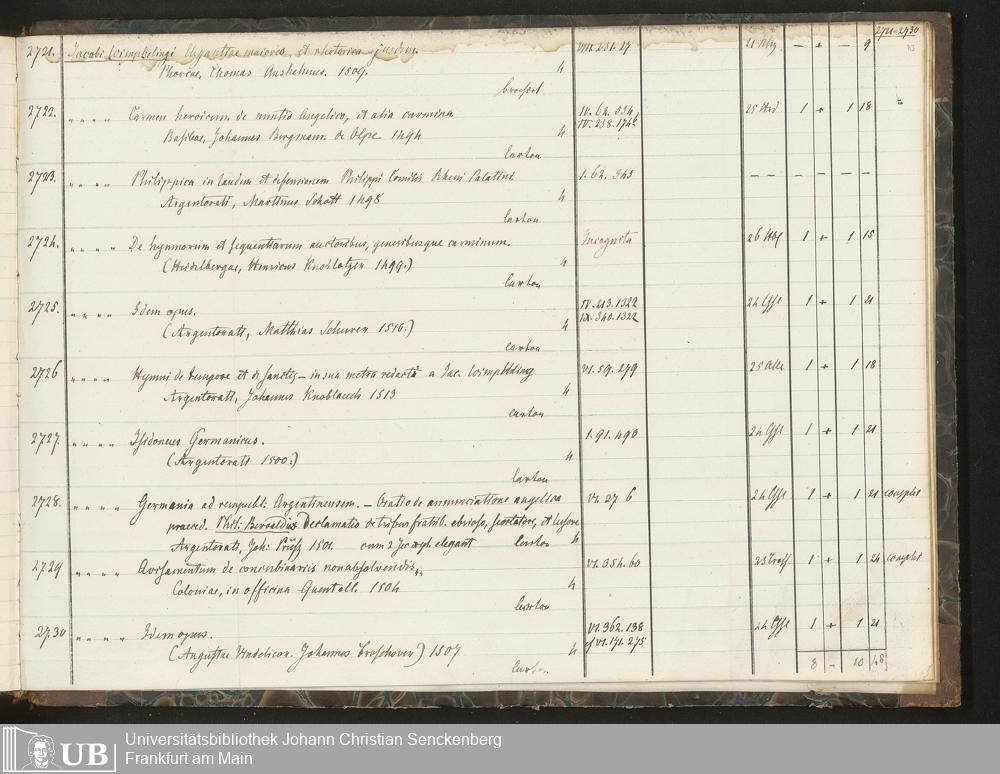 2721-2730
2721. Jacobi Wimphelingi Elegantiae maiores et rhetorica ejusdem. VIII. 231. 27 21 - + - 9
Phorcae, Thomas Anshelmus. 1509. 4
brochirt
2722. " " " " Carmen heroicum de nuntio Angelico, et alia carmina IV. 62. 534 25 1 + 1 18
Basileae, Johannes Bergmann de Olpe 1494 4 IV. 238. 174
Carton
2723. " " " " Philippica in laudem et defensionem Philippi Comitis Rheni Palatini. I. 62. 343 - - - - - - -
Argentorati, Martinus Schott 1498 4
Carton
2724. " " " " De hymnorum et sequentiarum auctoribus, generibusque carminum. Incognita 26 1 + 1 15
(Heidelbergae, Henricus Knoblotzer 1499.) 4
Carton
2725. " " " " Idem opus. IV. 213. 1322 24 1 + 1 21
(Argentorati, Matthias Schurer 1516.) 4 IX. 340. 1322
Carton
2726 " " " " Hymni de tempore et de sanctis - in sua metra redacti a Jac. Wimpheling VI. 59. 279 25 1 + 1 18
Argentorati, Johannes Knoblauch 1513 4
Carton
2727. " " " " Isidoneus Germanicus. I. 91. 490 24 1 + 1 21
(Argentorati 1500.) 4
Carton
2728. " " " " Germania ad rempubl: Argentinensem. - Oratio de annunciatione angelica VI. 27. 6 24 1 + 1 21 complet
praeced. Phil: Beroaldus Declamatio de tribus fratrib. ebrioso, scortatore, et lusore
Argentorati, Joh: Prüsz 1501. cum 2 elegant Carton 4
2729 " " " " Avisamentum de concubinariis non absolvendis VI. 354. 60 23 1 + 1 24 complet
Coloniae, in officina Quentell. 1504 4
Carton
2730 " " " " Idem opus. VI. 362. 138 24 1 + 1 21
(Augustae Vindelicor. Johannes Froschover) 1507 4 cf VI. 171. 275
Carton 8 - 10 48
UB Universitätsbibliothek Johann Christian Senckenberg
Frankfurt am Main